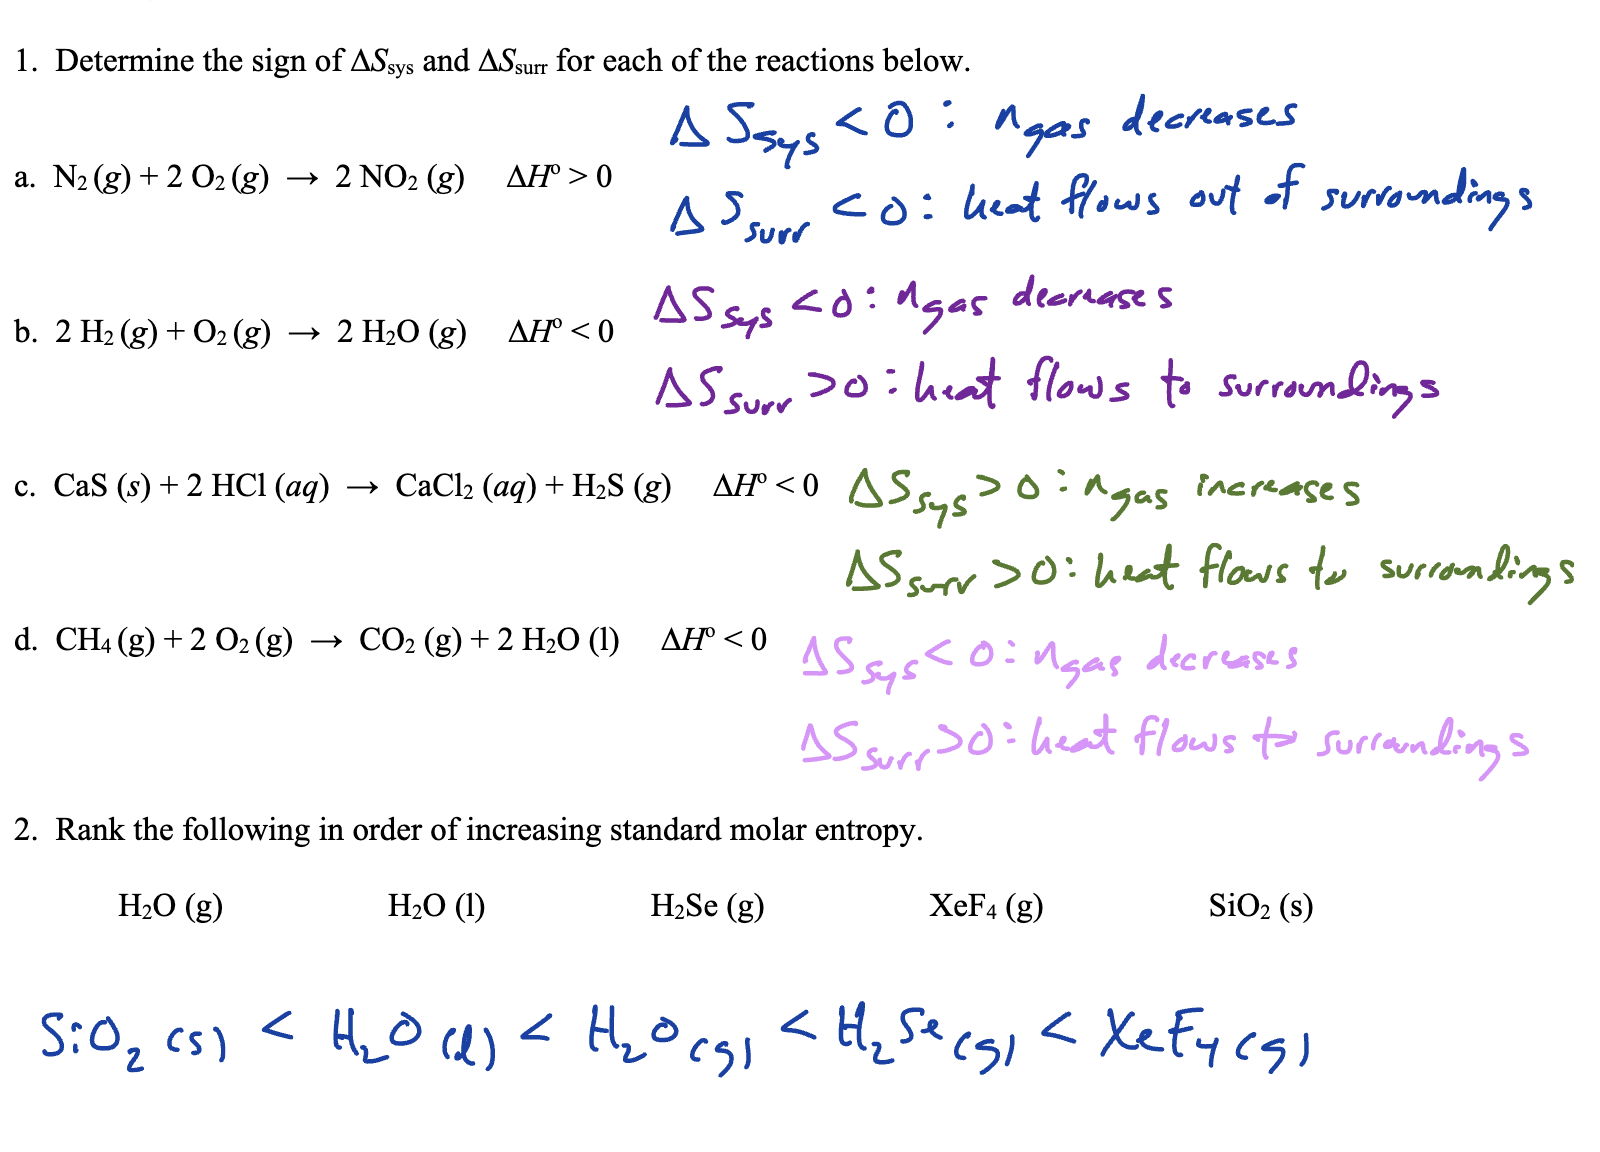 1. Determine the sign of ΔSsys and ΔSsurr for each of the reactions below.
ΔSsys < 0 : ngas decreases
a. N₂ (g) + 2 O₂ (g) → 2 NO₂ (g) ΔHº > 0
ΔSsurr < 0 : heat flows out of surroundings
ΔSsys < 0 : ngas decreases
b. 2 H₂ (g) + O₂ (g) → 2 H₂O (g) ΔHº < 0
ΔSsurr > 0 : heat flows to surroundings
c. CaS (s) + 2 HCl (aq) → CaCl₂ (aq) + H₂S (g) ΔHº < 0 ΔSsys > 0 : ngas increases
ΔSsurr > 0 : heat flows to surroundings
d. CH₄ (g) + 2 O₂ (g) → CO₂ (g) + 2 H₂O (l) ΔHº < 0 ΔSsys < 0 : ngas decreases
ΔSsurr > 0 : heat flows to surroundings
2. Rank the following in order of increasing standard molar entropy.
H₂O (g) H₂O (l) H₂Se (g) XeF₄ (g) SiO₂ (s)
SiO₂ (s) < H₂O (l) < H₂O (g) < H₂Se (g) < XeF₄ (g)